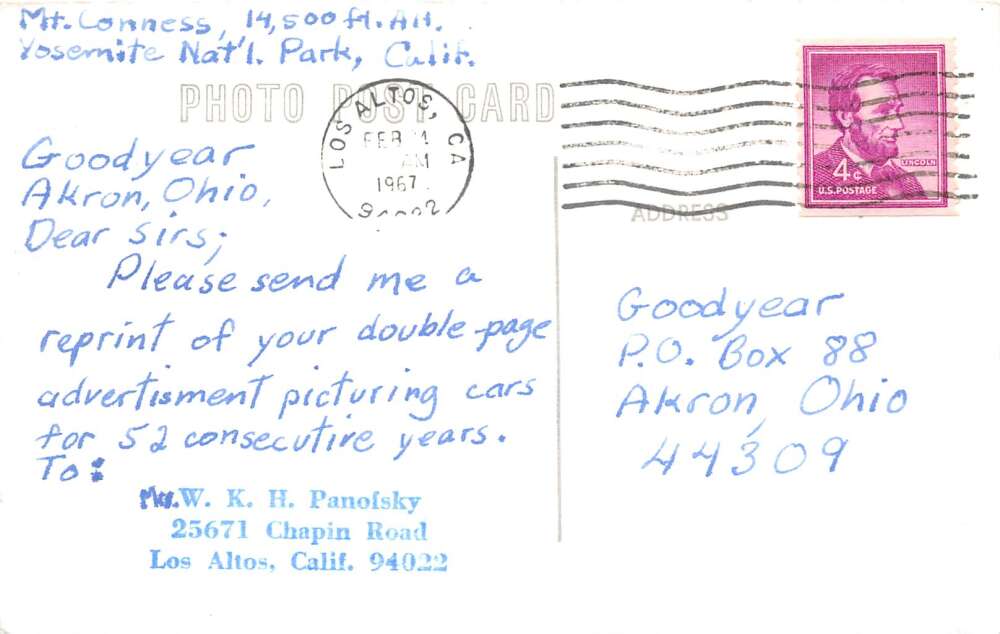 Mt. Conness, 14,500 ft. Alt.
Yosemite Nat'l. Park, Calif.
PHOTO POST CARD
LOS ALTOS, CA
FEB
AM
1967
LINCOLN
4¢
U.S. POSTAGE
ADDRESS
Goodyear
Akron, Ohio,
Dear Sirs;
Please send me a
reprint of your double-page
advertisment picturing cars
for 52 consecutive years.
To:
W. K. H. Panofsky
25671 Chapin Road
Los Altos, Calif. 94022
Goodyear
P.O. Box 88
Akron, Ohio
44309